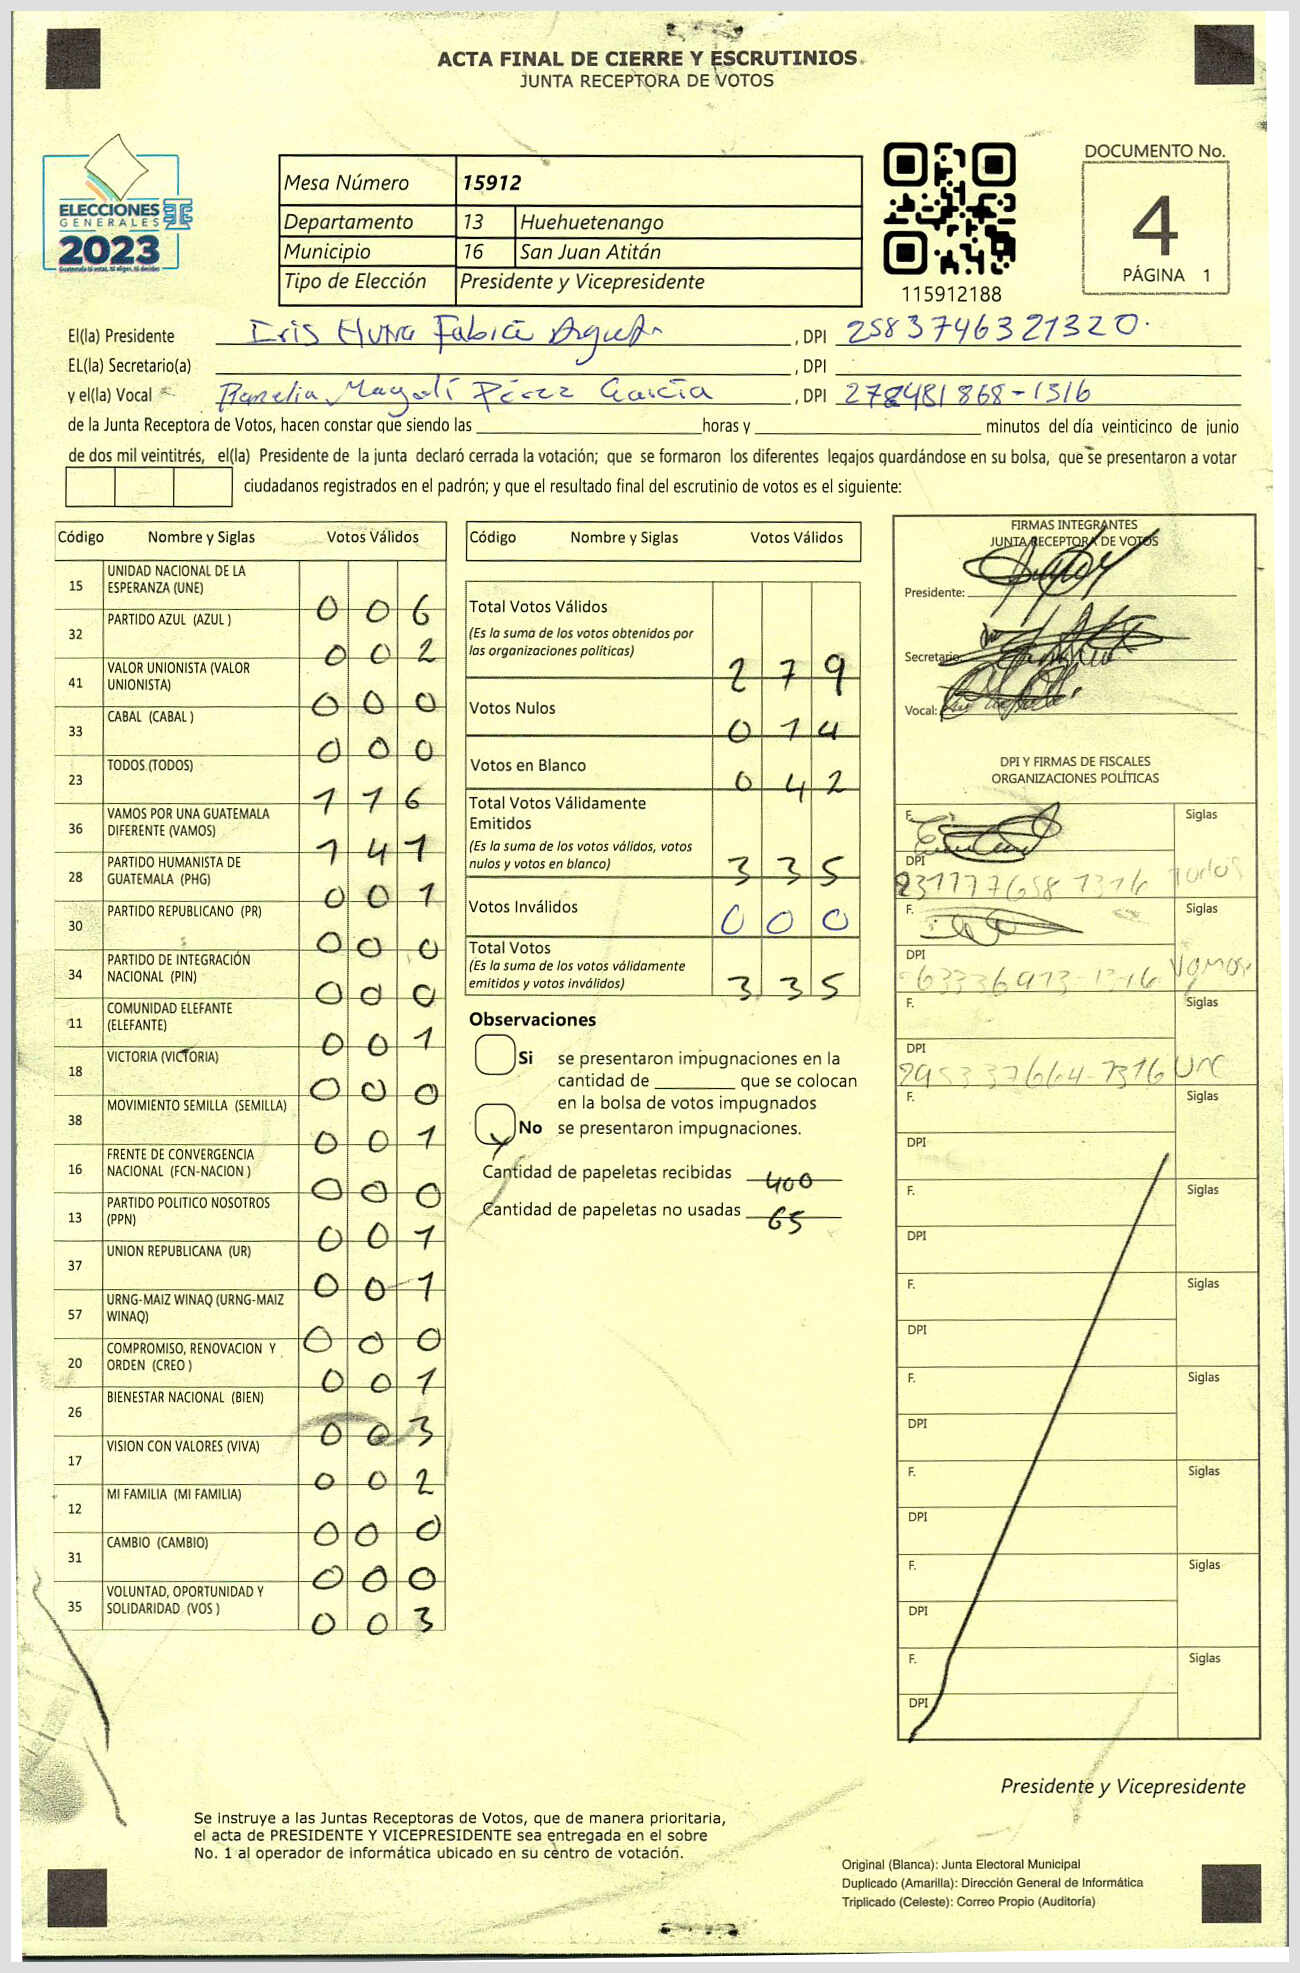 ACTA FINAL DE CIERRE Y ESCRUTINIOS
JUNTA RECEPTORA DE VOTOS
ELECCIONES
GENERALES
2023
Mesa Número 15912
Departamento 13 Huehuetenango
Municipio 16 San Juan Atitán
Tipo de Elección Presidente y Vicepresidente
115912188
DOCUMENTO No.
4
PÁGINA 1
El(la) Presidente Iris , DPI 2583746321320.
EL(la) Secretario(a) , DPI
y el(la) Vocal Magalí Pérez García , DPI 278481868-1316
de la Junta Receptora de Votos, hacen constar que siendo las horas y minutos del día veinticinco de junio
de dos mil veintitrés, el(la) Presidente de la junta declaró cerrada la votación; que se formaron los diferentes legajos guardándose en su bolsa, que se presentaron a votar
ciudadanos registrados en el padrón; y que el resultado final del escrutinio de votos es el siguiente:
Código Nombre y Siglas Votos Válidos
15 UNIDAD NACIONAL DE LA
ESPERANZA (UNE) 0 0 6
32 PARTIDO AZUL (AZUL ) 0 0 2
41 VALOR UNIONISTA (VALOR
UNIONISTA) 0 0 0
33 CABAL (CABAL ) 0 0 0
23 TODOS (TODOS) 1 1 6
36 VAMOS POR UNA GUATEMALA
DIFERENTE (VAMOS) 1 4 1
28 PARTIDO HUMANISTA DE
GUATEMALA (PHG) 0 0 1
30 PARTIDO REPUBLICANO (PR) 0 0 0
34 PARTIDO DE INTEGRACIÓN
NACIONAL (PIN) 0 0 0
11 COMUNIDAD ELEFANTE
(ELEFANTE) 0 0 1
18 VICTORIA (VICTORIA) 0 0 0
38 MOVIMIENTO SEMILLA (SEMILLA) 0 0 1
16 FRENTE DE CONVERGENCIA
NACIONAL (FCN-NACION ) 0 0 0
13 PARTIDO POLITICO NOSOTROS
(PPN) 0 0 1
37 UNION REPUBLICANA (UR) 0 0 1
57 URNG-MAIZ WINAQ (URNG-MAIZ
WINAQ) 0 0 0
20 COMPROMISO, RENOVACION Y
ORDEN (CREO ) 0 0 1
26 BIENESTAR NACIONAL (BIEN) 0 0 3
17 VISION CON VALORES (VIVA) 0 0 2
12 MI FAMILIA (MI FAMILIA) 0 0 0
31 CAMBIO (CAMBIO) 0 0 0
35 VOLUNTAD, OPORTUNIDAD Y
SOLIDARIDAD (VOS ) 0 0 3
Código Nombre y Siglas Votos Válidos
Total Votos Válidos
(Es la suma de los votos obtenidos por
las organizaciones políticas) 2 7 9
Votos Nulos 0 14
Votos en Blanco 0 4 2
Total Votos Válidamente
Emitidos
(Es la suma de los votos válidos, votos
nulos y votos en blanco) 3 3 5
Votos Inválidos 0 0 0
Total Votos
(Es la suma de los votos válidamente
emitidos y votos inválidos) 3 3 5
Observaciones
Si se presentaron impugnaciones en la
cantidad de que se colocan
en la bolsa de votos impugnados
No se presentaron impugnaciones.
Cantidad de papeletas recibidas 400
Cantidad de papeletas no usadas 65
FIRMAS INTEGRANTES
JUNTA RECEPTORA DE VOTOS
Presidente:
Secretario:
Vocal:
DPI Y FIRMAS DE FISCALES
ORGANIZACIONES POLÍTICAS
F. Siglas
DPI Todos
F. Siglas
DPI Vamos
F. Siglas
DPI 295337664-1316 UNE
F. Siglas
DPI
F. Siglas
DPI
F. Siglas
DPI
F. Siglas
DPI
F. Siglas
DPI
F. Siglas
DPI
F. Siglas
DPI
Presidente y Vicepresidente
Se instruye a las Juntas Receptoras de Votos, que de manera prioritaria,
el acta de PRESIDENTE Y VICEPRESIDENTE sea entregada en el sobre
No. 1 al operador de informática ubicado en su centro de votación.
Original (Blanca): Junta Electoral Municipal
Duplicado (Amarilla): Dirección General de Informática
Triplicado (Celeste): Correo Propio (Auditoría)